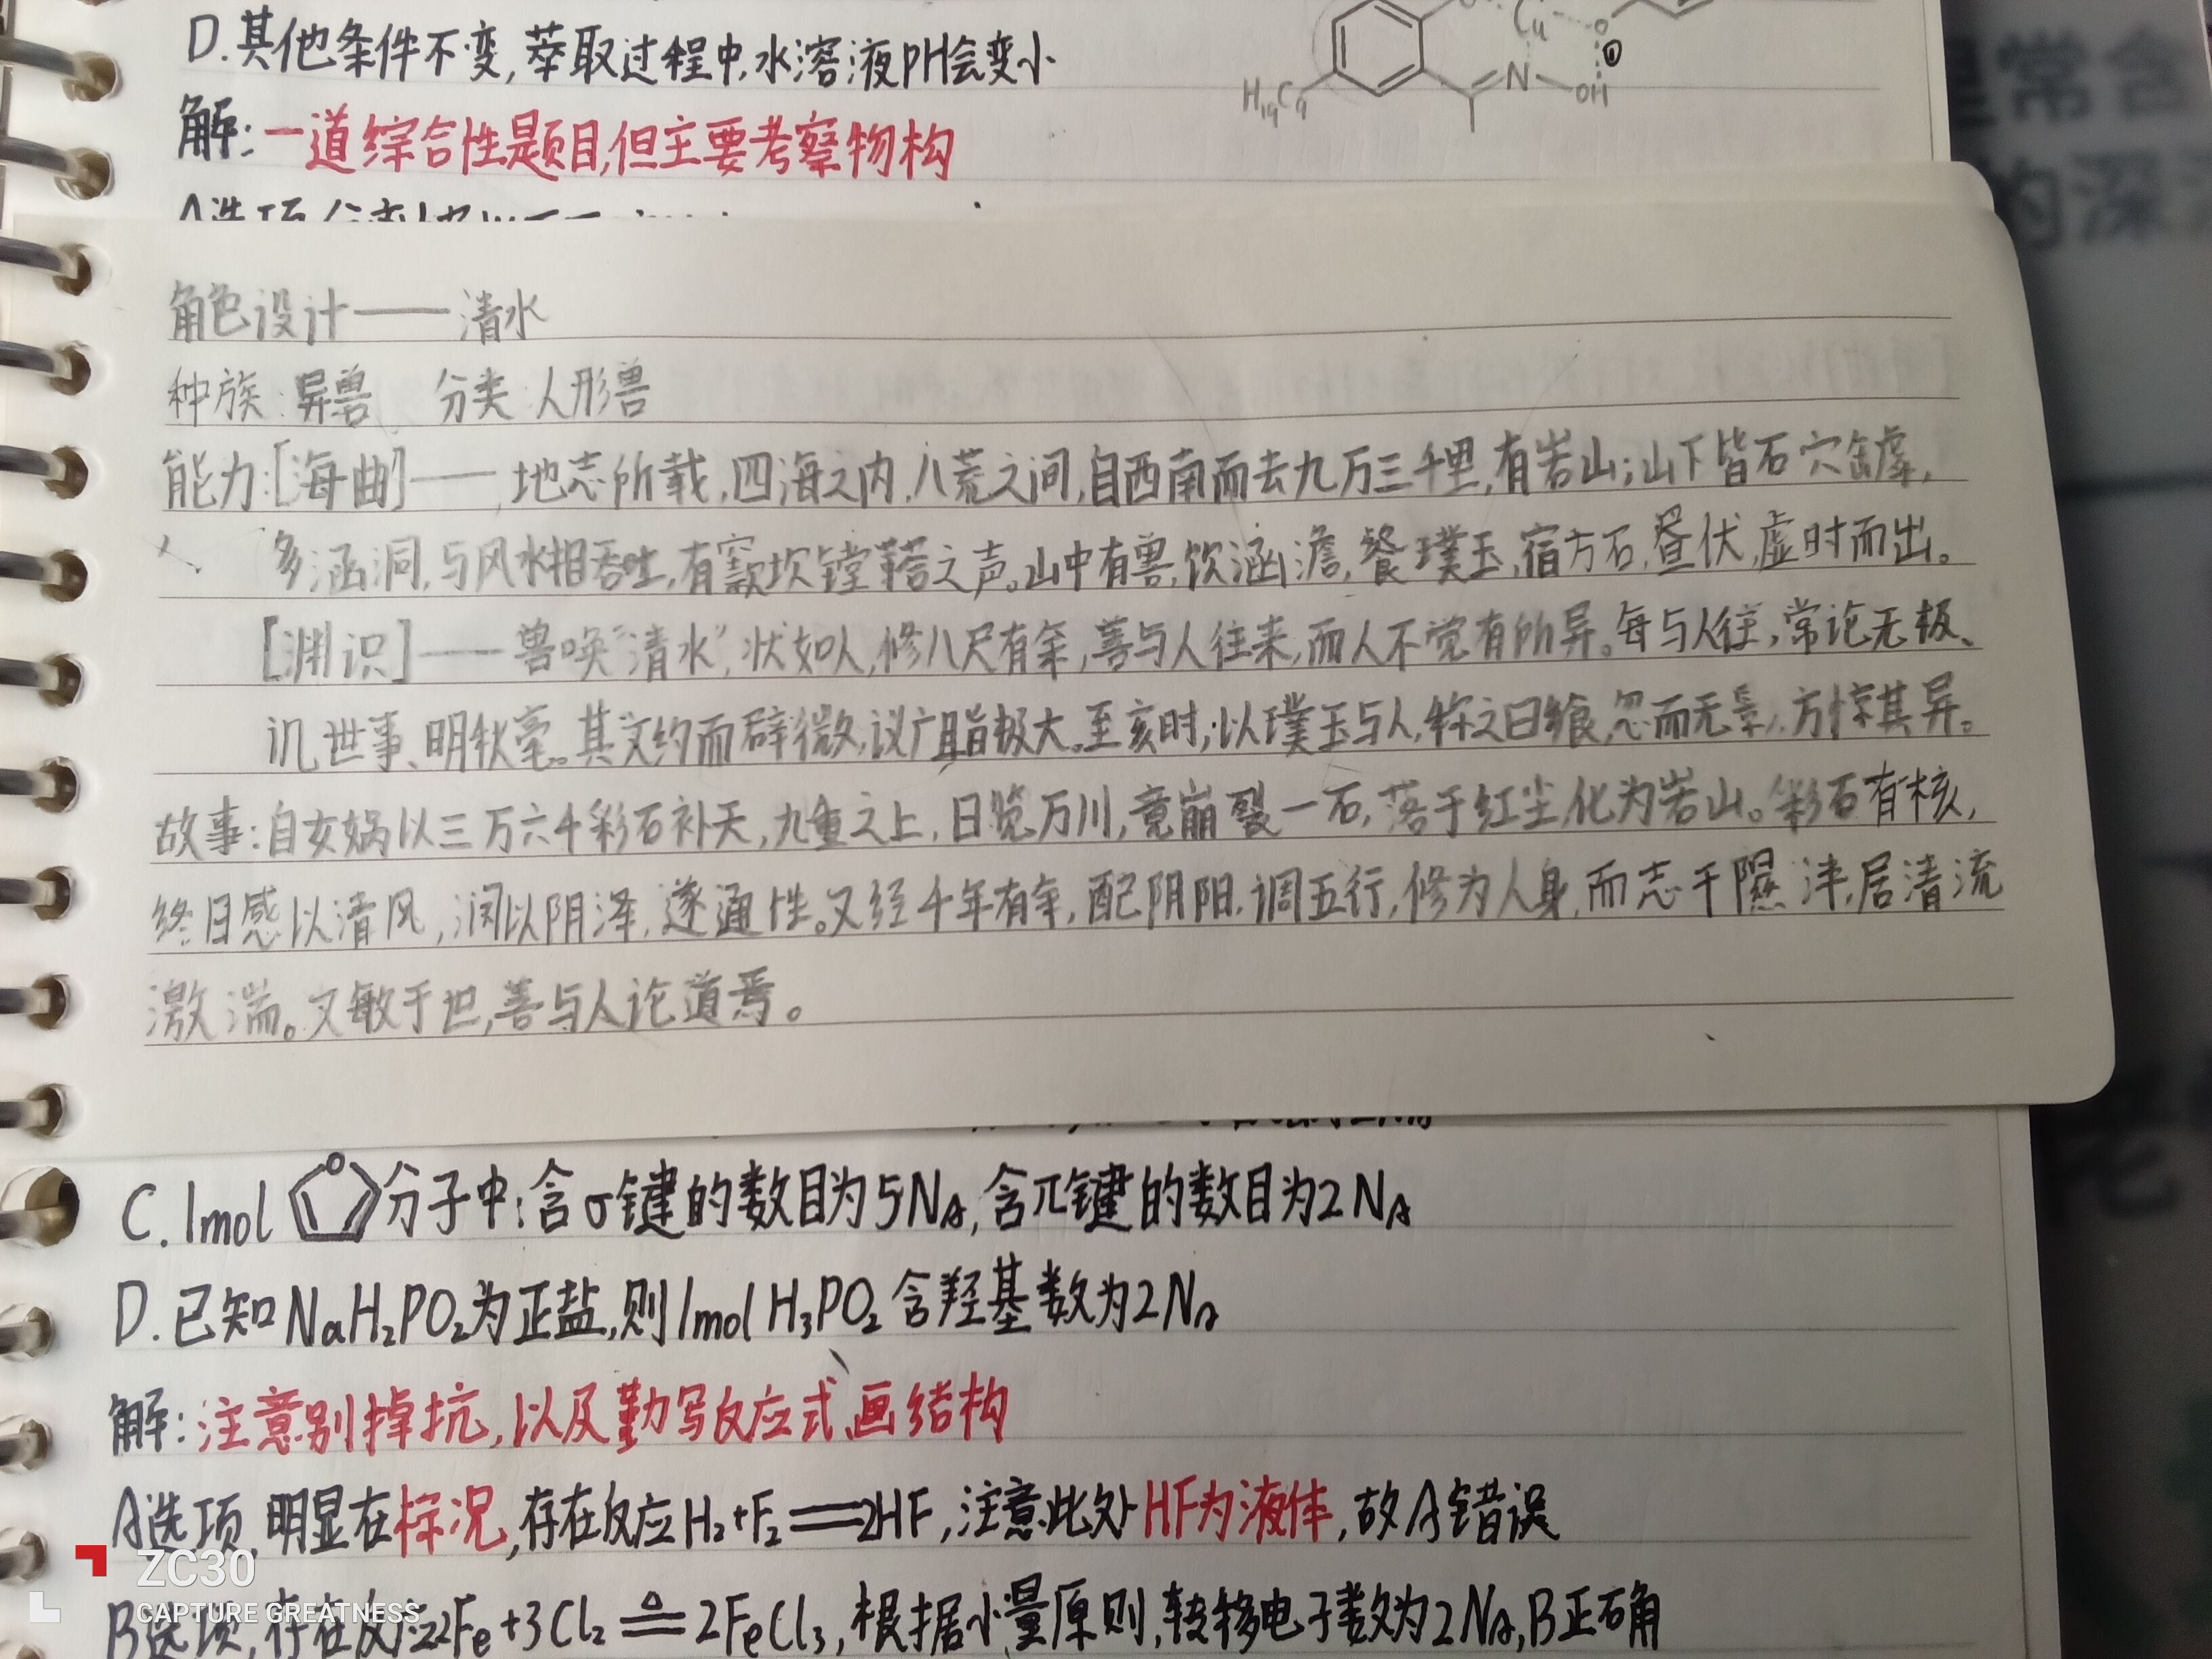 D.其他条件不变,萃取过程中,水溶液pH会变小
Cu
N
OH
①
H₁₉C₉
解:一道综合性题目,但主要考察物构
A选项
角色设计——清水
种族:异兽 分类:人形兽
能力:[海曲]——地志所载,四海之内,八荒之间,自西南而去九万三千里,有岩山;山下皆石穴罅,
多涵洞,与风水相吞吐,有窾坎镗鞳之声。山中有兽,饮涵澹,餐璞玉,宿方石,昼伏,虚时而出。
[渊识]——兽唤“清水”,状如人,修八尺有余,善与人往来,而人不觉有所异。每与人往,常论无极、
讥世事、明秋毫。其文约而辞微,议广旨极大。至亥时,以璞玉与人,称之曰飨,忽而无影,方惊其异。
故事:自女娲以三万六千彩石补天,九重之上,日览万川,竟崩裂一石,落于红尘,化为岩山。彩石有核,
终日感以清风,润以阴泽,遂通性。又经千年有余,配阴阳,调五行,修为人身,而志于隰津,居清流
激湍。又敏于世,善与人论道焉。
C. 1mol 分子中:含σ键的数目为5Nₐ,含π键的数目为2Nₐ
D.已知NaH₂PO₂为正盐,则1mol H₃PO₂含羟基数为2Nₐ
解:注意别掉坑,以及勤写反应式,画结构
A选项,明显在标况,存在反应H₂+F₂══2HF,注意此处HF为液体,故A错误
B选项,存在反应:2Fe+3Cl₂ ≜ 2FeCl₃,根据小量原则,转移电子数为2Nₐ,B正确
ZC30
CAPTURE GREATNESS
常含
的深